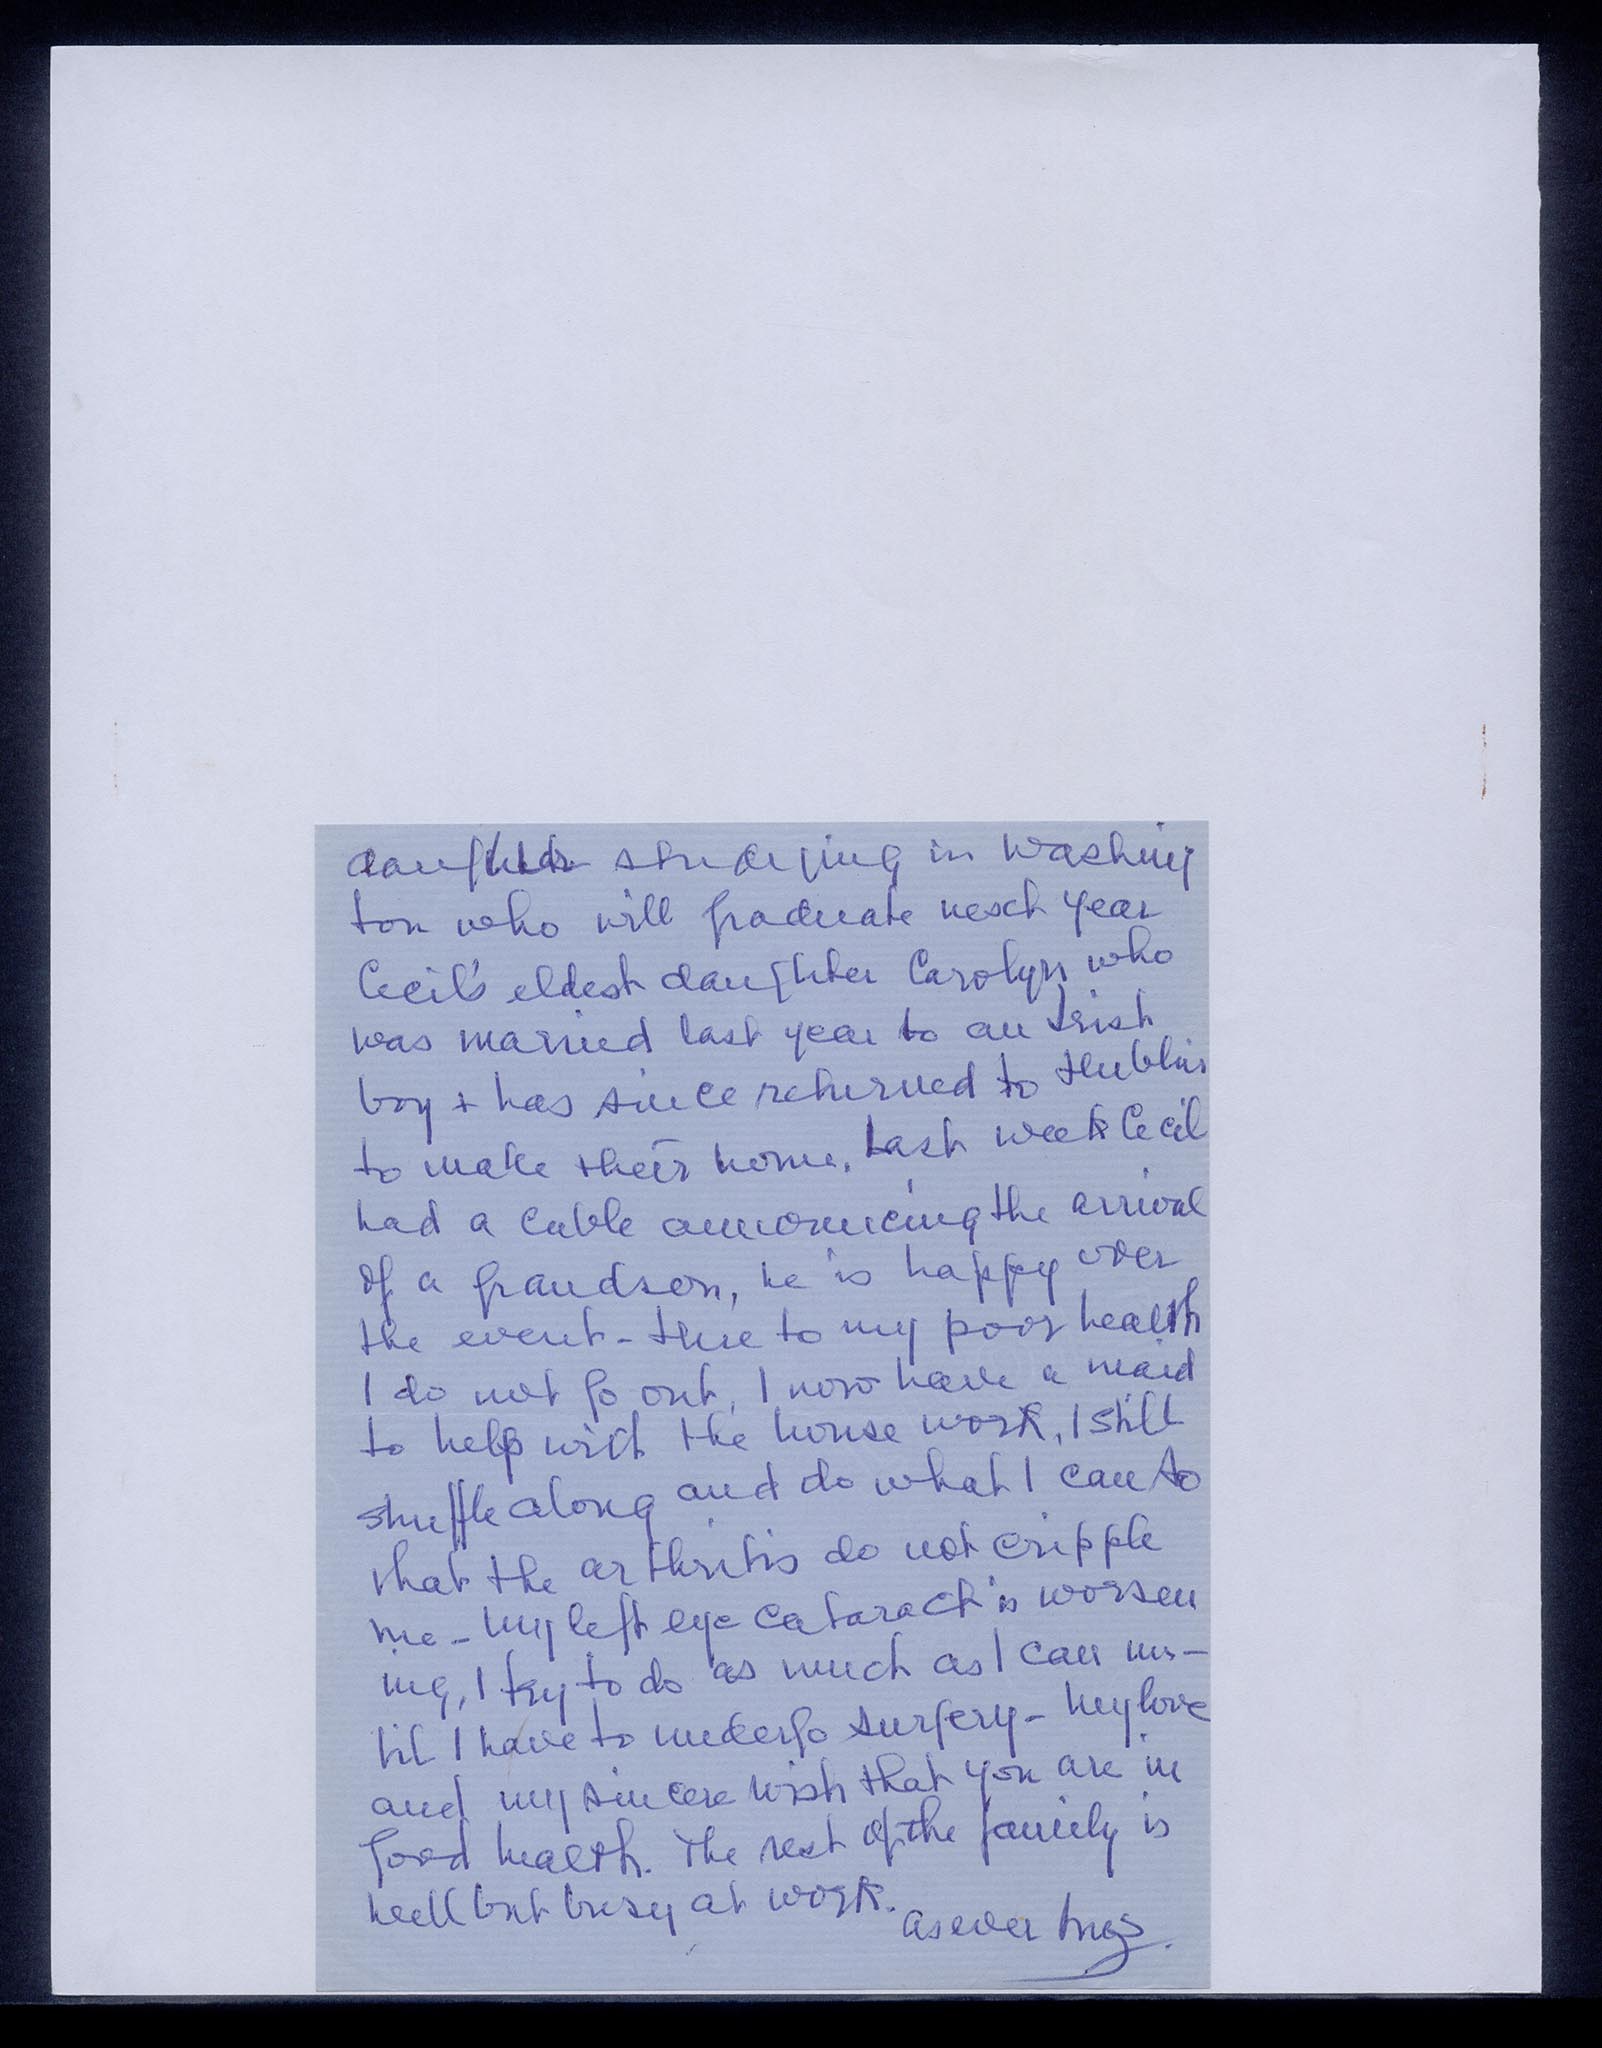 daughter studying in Washing
ton who will graduate next year
Cecil's eldest daughter Carolyn who
was married last year to an Irish
boy + has since returned to Dublin
to make their home. Last week Cecil
had a cable announcing the arrival
of a grandson, he is happy over
the event - due to my poor health
I do not go out, I now have a maid
to help with the house work, I still
shuffle along and do what I can so
that the arthritis do not cripple
me - My left eye cataract is worsen
ing, I try to do as much as I can un-
til I have to undergo surgery - My love
and my sincere wish that you are in
good health. The rest of the family is
well but busy at work.
as ever